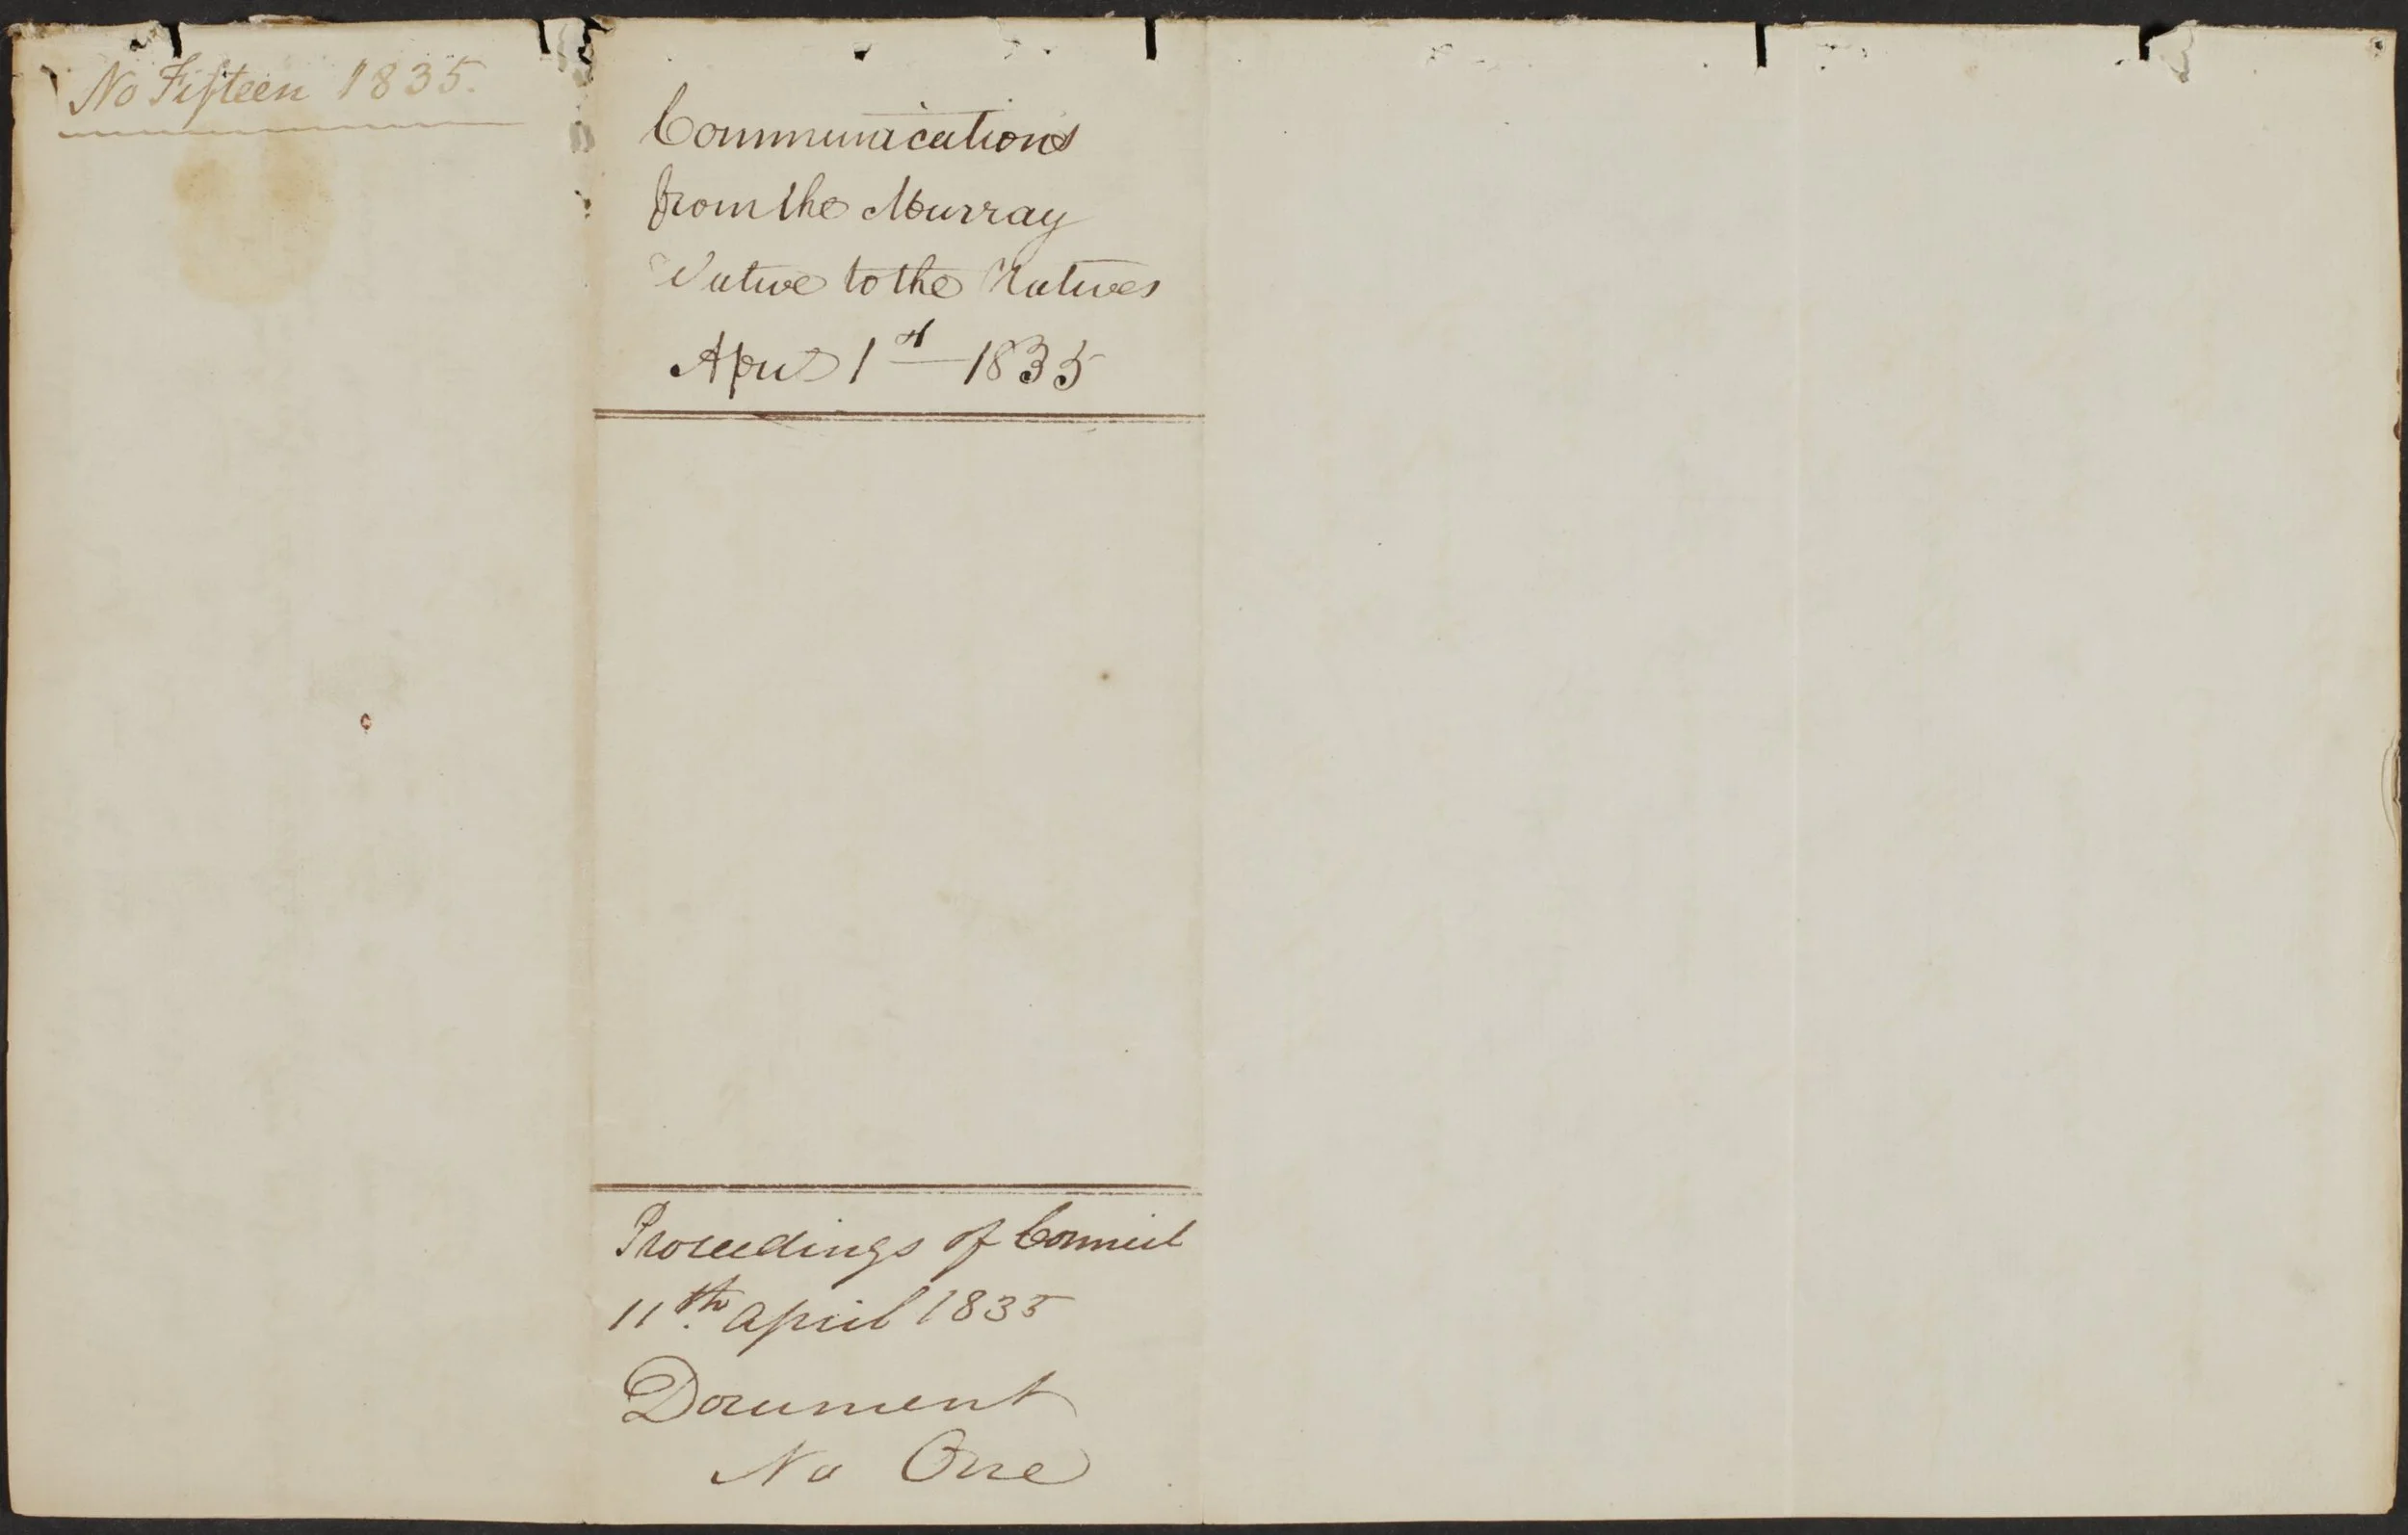 No Fifteen 1835.
Communications
from the Murray
Native to the Natives
April 1st 1835
Proceedings of Council
11th. April 1835
Document
No One